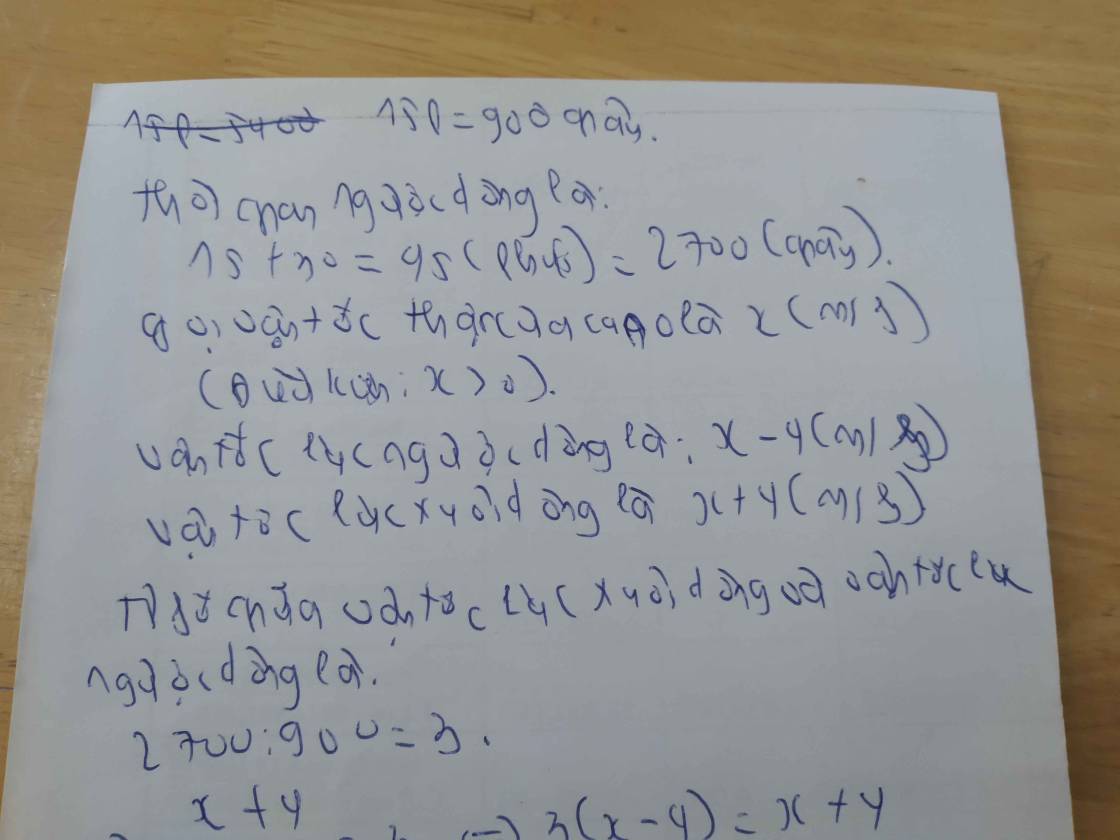 15p = 5400 15p = 900 giây.
thời gian ngược dòng là:
15 + 30 = 45 (phút) = 2700 (giây).
gọi vận tốc thực của cano là x (m/s)
(Điều kiện: x > 0).
vận tốc lúc ngược dòng là: x - 4 (m/s)
vận tốc lúc xuôi dòng là x + 4 (m/s)
Tỉ số giữa vận tốc lúc xuôi dòng và vận tốc lúc
ngược dòng là.
2700 : 900 = 3.
x + 4
3(x - 4) = x + 4